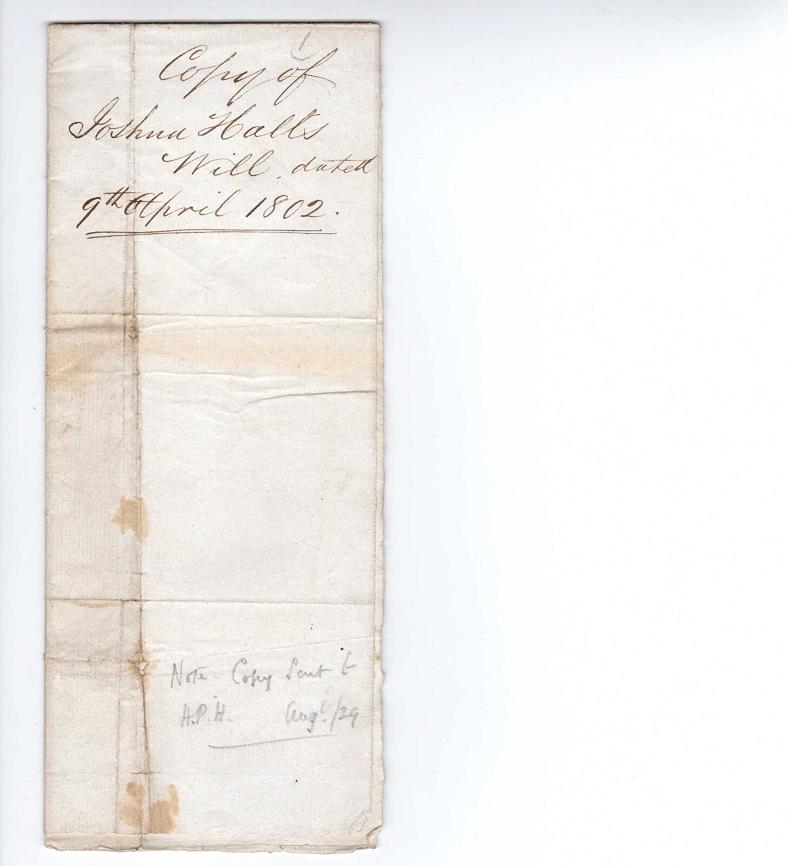 Copy of
Joshua Hall's
Will, dated
9th April 1802.
Note - Copy Sent to
A.P.H. Augt/29